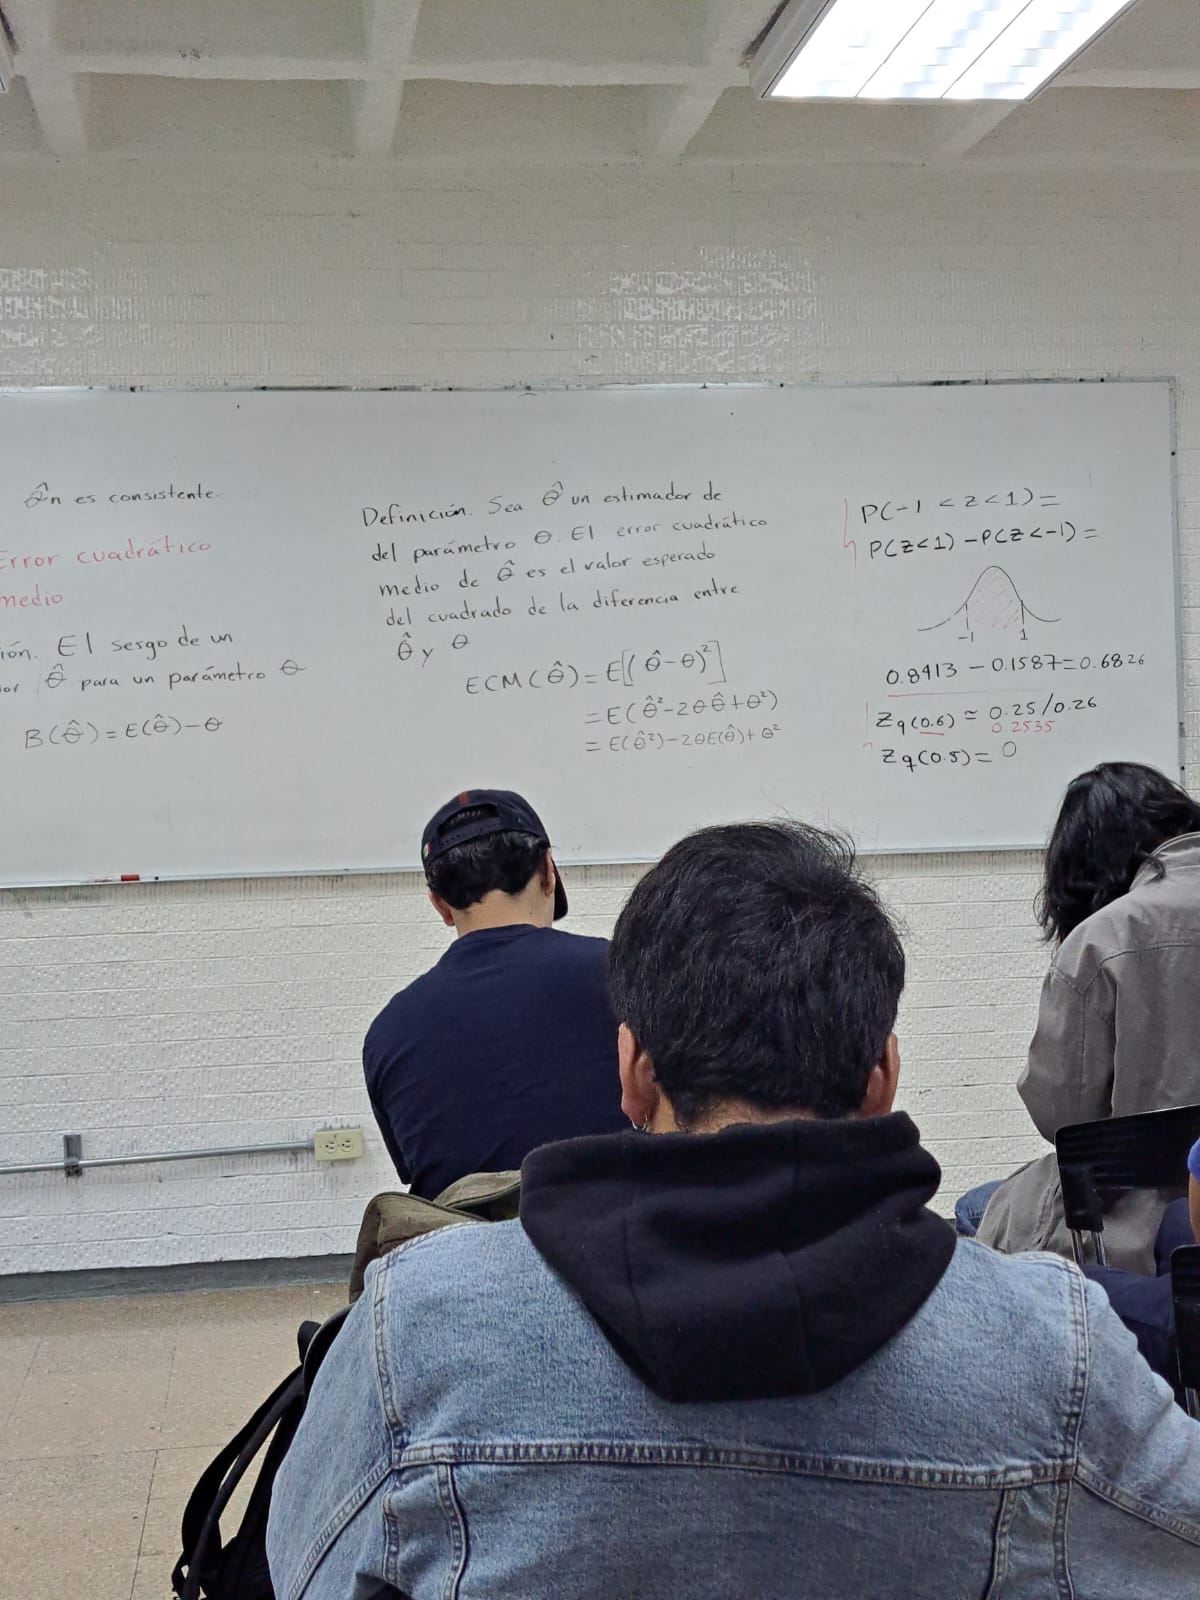 θ̂n es consistente.
Error cuadrático
medio
ión. El sesgo de un
or θ̂ para un parámetro θ
B(θ̂) = E(θ̂) - θ
Definición. Sea θ̂ un estimador de
del parámetro θ. El error cuadrático
medio de θ̂ es el valor esperado
del cuadrado de la diferencia entre
θ̂ y θ
ECM(θ̂) = E[(θ̂ - θ)²]
= E(θ̂² - 2θθ̂ + θ²)
= E(θ̂²) - 2θE(θ̂) + θ²
P(-1 < z < 1) =
P(z < 1) - P(z < -1) =
-1 1
0.8413 - 0.1587 = 0.6826
Zq(0.6) ≈ 0.25/0.26
0.2535
Zq(0.5) = 0